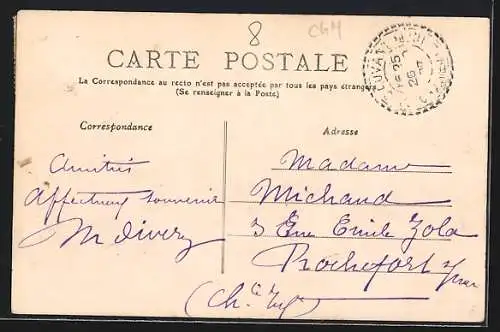 8
CGM
CARTE POSTALE
La Correspondance au recto n'est pas acceptée par tous les pays étrangers
(Se renseigner à la Poste)
Correspondance
Adresse
Amitiés
Affectueux souvenir
Madame
Michaud
3 Rue Emile Zola
Rochefort
(Ch. Inf.)